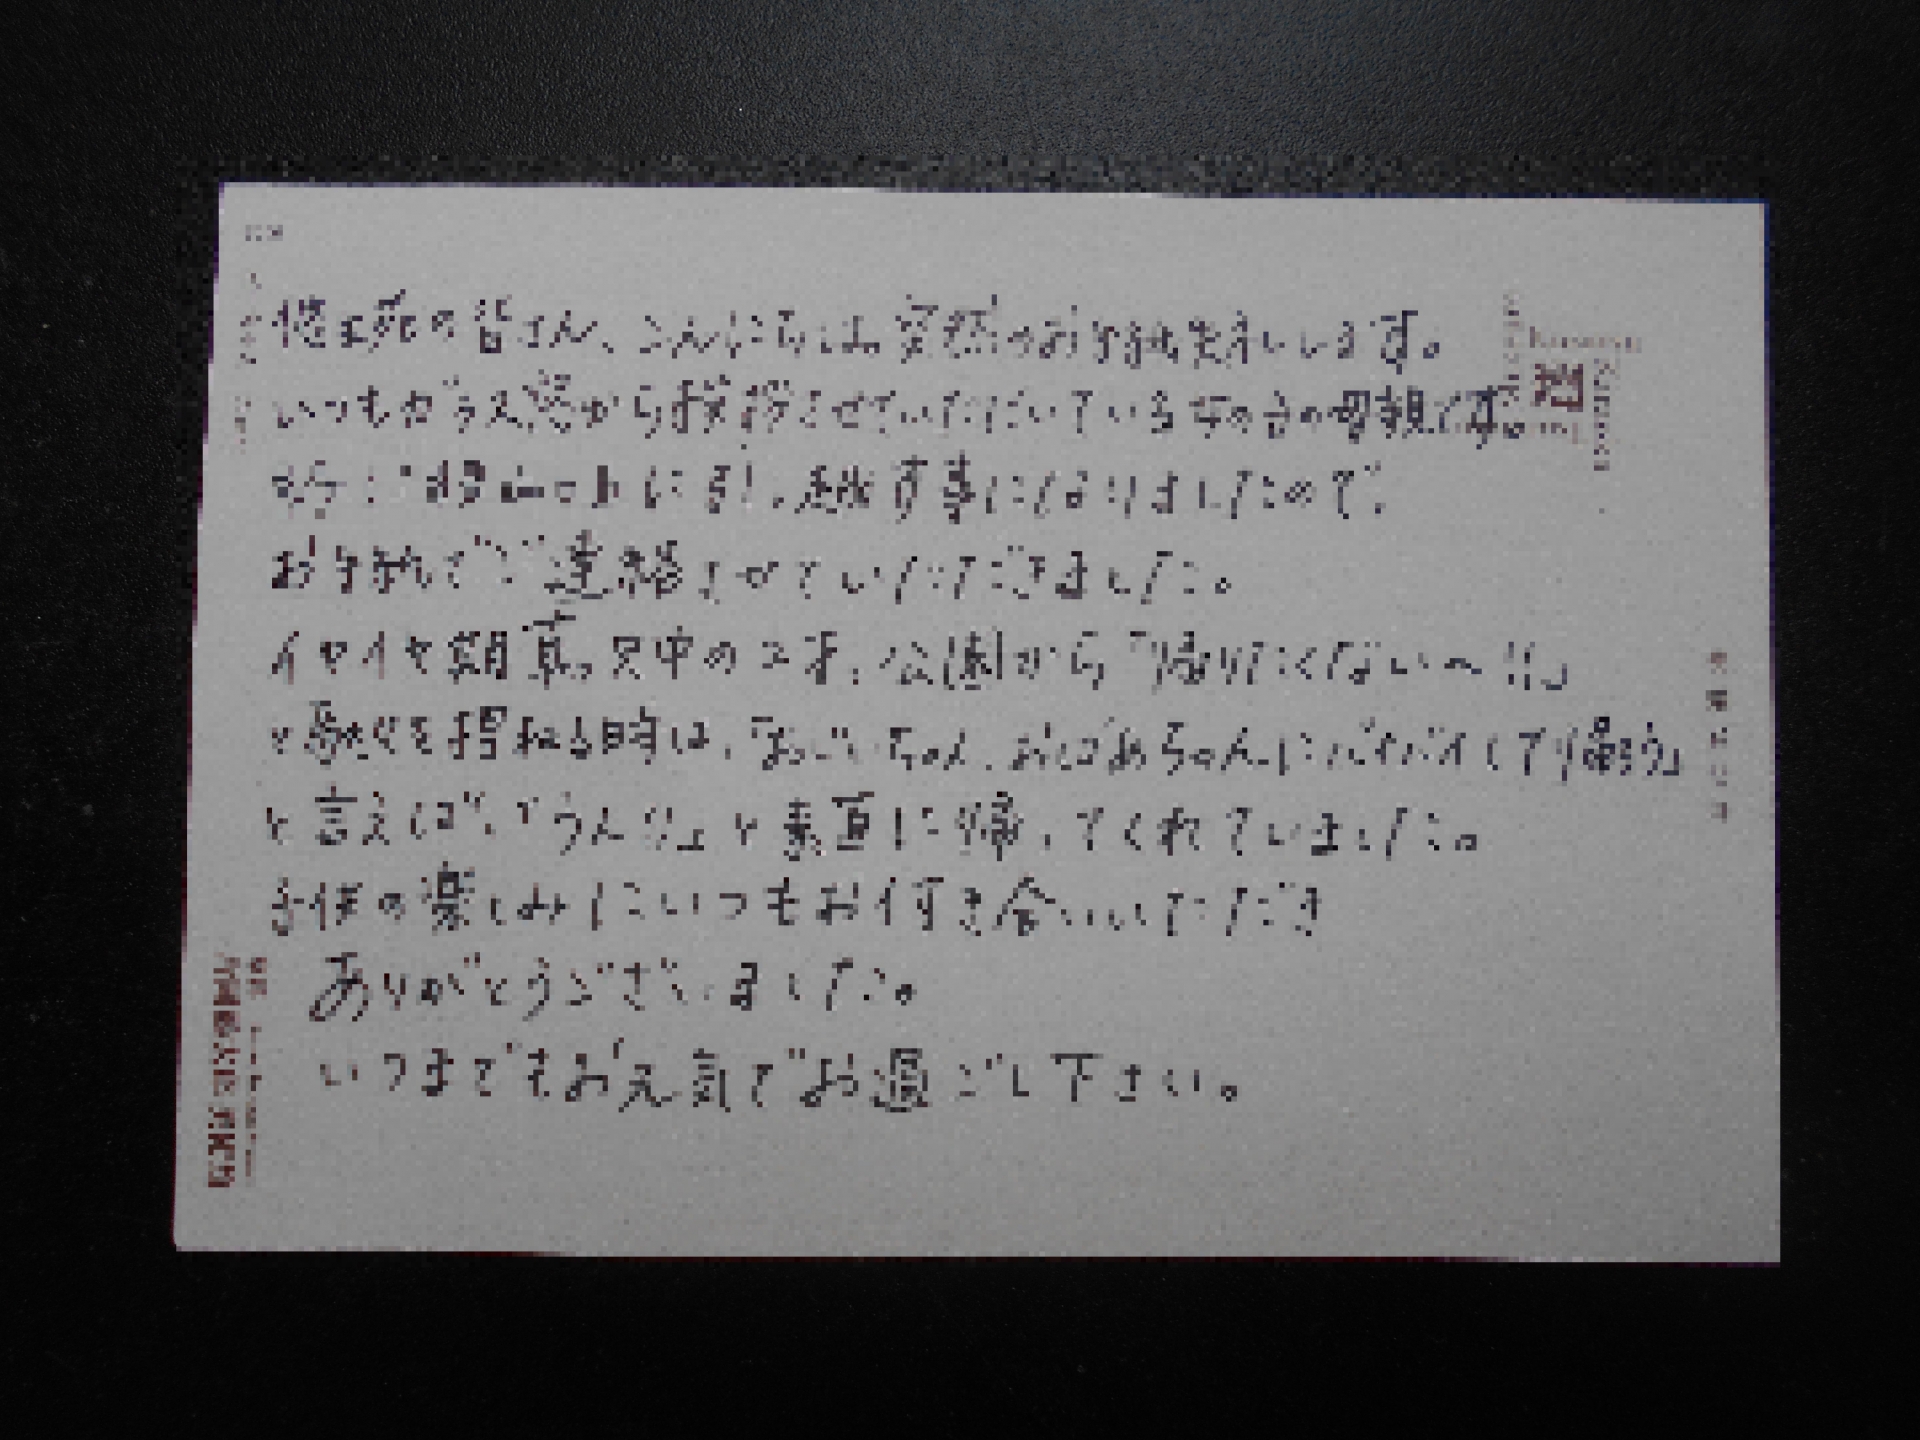 の皆さん、こんにちは。突然のお手紙失礼します。
いつもガラス窓から挨拶させていただいている女の子の母親です。
に引っ越す事になりましたので、
お手紙でご連絡させていただきました。
イヤイヤ期真っ只中の2才、公園から「帰りたくない〜!!」
と駄々を捏ねる時は、「おじいちゃん、おばあちゃんにバイバイして帰ろう」
と言えば、「うん!!」と素直に帰ってくれていました。
子供の楽しみにいつもお付き合いいただき
ありがとうございました。
いつまでもお元気でお過ごし下さい。